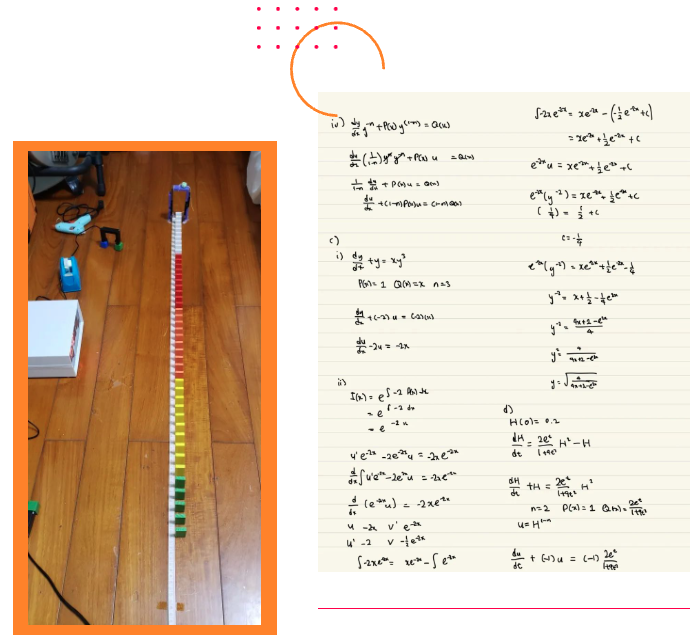 iv) dy/dx y^-n + P(x) y^(1-n) = Q(x)
du/dx (1/(1-n)) y^n y^-n + P(x) u = Q(x)
1/(1-n) du/dx + P(x) u = Q(x)
du/dx + (1-n) P(x) u = (1-n) Q(x)
c)
i) dy/dx + y = xy^3
P(x) = 1 Q(x) = x n=3
+ (-2) u = (-2)(x)
du/dx - 2u = -2x
ii)
I(x) = e^∫-2 P(x) dx
= e^∫-2 dx
= e^-2x
u'e^-2x - 2e^-2x u = -2xe^-2x
d/dx ∫ u'e^-2x - 2e^-2x u = -2xe^-2x
d/dx (e^-2x u) = -2xe^-2x
u -2x v' e^-2x
u' -2 v -1/2 e^-2x
∫-2xe^-2x = xe^-2x - ∫ e^-2x
∫-2xe^-2x = xe^-2x - (-1/2 e^-2x + c)
= xe^-2x + 1/2 e^-2x + c
e^-2x u = xe^-2x + 1/2 e^-2x + c
e^-2x (y^-2) = xe^-2x + 1/2 e^-2x + c
(1/4) = 1/2 + c
c = -1/4
e^-2x (y^-2) = xe^-2x + 1/2 e^-2x - 1/4
y^-2 = x + 1/2 - 1/4 e^2x
y^-2 = (4x+2-e^2x)/4
y^2 = 4/(4x+2-e^2x)
y = √(4/(4x+2-e^2x))
d)
H(0) = 0.2
dH/dt = 2e^t/(1+9t^2) H^2 - H
dH/dt + H = 2e^t/(1+9t^2) H^2
n=2 P(x) = 1 Q(x) = 2e^t/(1+9t^2)
u = H^1-n
du/dt + (-1) u = (-1) 2e^t/(1+9t^2)